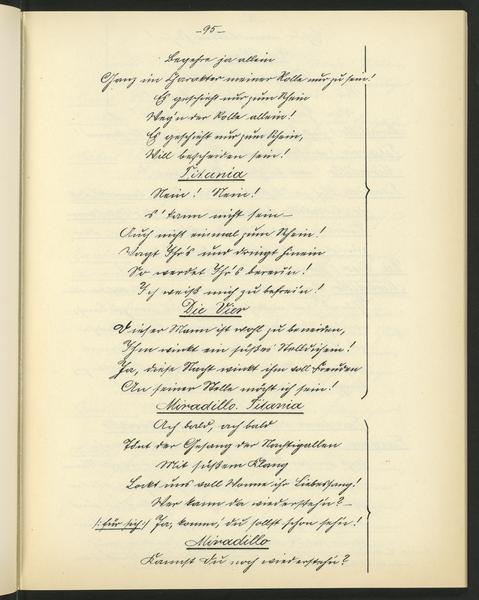 -95-
Begehre ja allein
Ganz im Charakter meiner Rolle nur zu sein!
Es geschieht nur zum Schein
Weg'n der Rolle allein!
Es geschieht nur zum Schein,
Will bescheiden sein!
Titania
Nein! Nein!
s' kann nicht sein—
Auch nicht einmal zum Schein!
Wagt Ihr's und dringt hinein
So werdet Ihr's bereu'n!
Ich weiß mich zu befrei'n!
Die Vier
Dieser Mann ist wohl zu beneiden,
Ihm winkt ein süßes Stelldichein!
Ja, diese Nacht winkt ihm voll Freuden
An seiner Stelle möcht ich sein!
Miradillo. Titania
Ach bald, ach bald
Tönt der Gesang der Nachtigallen
Mit süßem Klang
Lockt uns voll Wonne ihr Liebessang!
Wer kann da wiedersteh'n?—
/: für sich :/ Ja, komm', du sollst schon seh'n!
Miradillo
Kannst du noch wiedersteh'n?